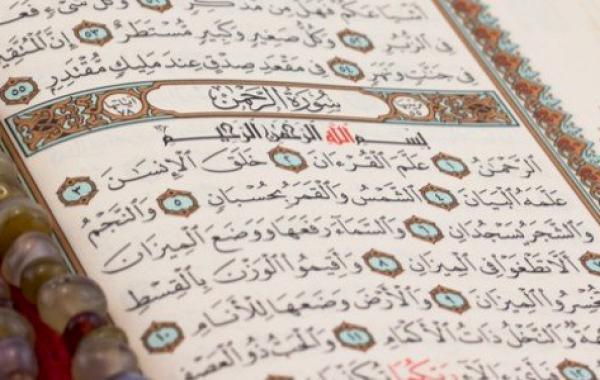 فَهَلْ مِن مُّدَّكِرٍ وَكُلُّ شَيْءٍ
فِي الزُّبُرِ ٥٢ وَكُلُّ صَغِيرٍ وَكَبِيرٍ مُّسْتَطَرٌ ٥٣ إِنَّ الْمُتَّقِينَ
فِي جَنَّٰتٍ وَنَهَرٍ ٥٤ فِي مَقْعَدِ صِدْقٍ عِندَ مَلِيكٍ مُّقْتَدِرٍ ٥٥
سُورَةُ الرَّحْمَٰن
بِسْمِ اللَّهِ الرَّحْمَٰنِ الرَّحِيمِ
الرَّحْمَٰنُ ١ عَلَّمَ الْقُرْءَانَ ٢ خَلَقَ الْإِنسَٰنَ ٣
عَلَّمَهُ الْبَيَانَ ٤ الشَّمْسُ وَالْقَمَرُ بِحُسْبَانٍ ٥ وَالنَّجْمُ
وَالشَّجَرُ يَسْجُدَانِ ٦ وَالسَّمَاءَ رَفَعَهَا وَوَضَعَ الْمِيزَانَ
أَلَّا تَطْغَوْا فِي الْمِيزَانِ ٨ وَأَقِيمُوا الْوَزْنَ بِالْقِسْطِ
خْسِرُوا الْمِيزَانَ ٩ وَالْأَرْضَ وَضَعَهَا لِلْأَنَامِ ١٠
هَةٌ وَالنَّخْلُ ذَاتُ الْأَكْمَامِ ١١ وَالْحَبُّ ذُو الْعَصْفِ
١٢